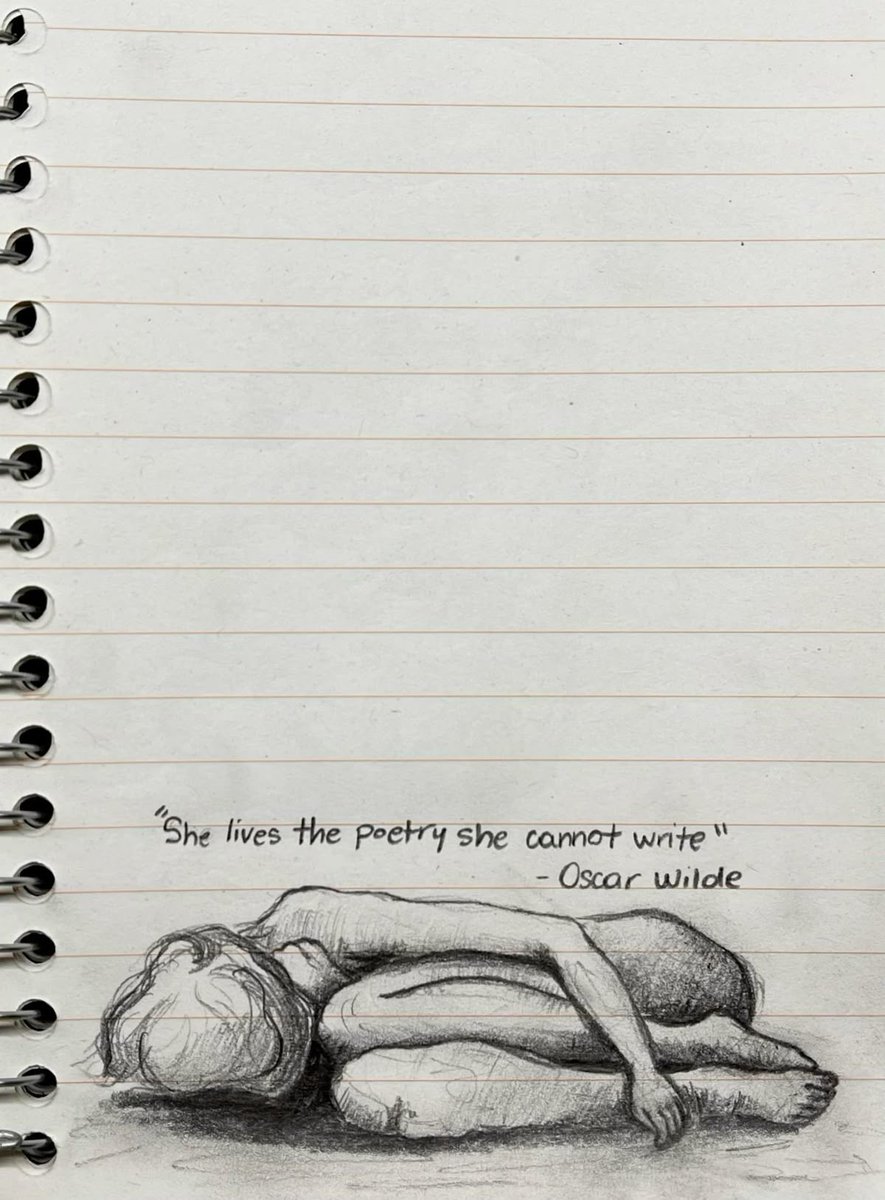 "She lives the poetry she cannot write"
- Oscar Wilde